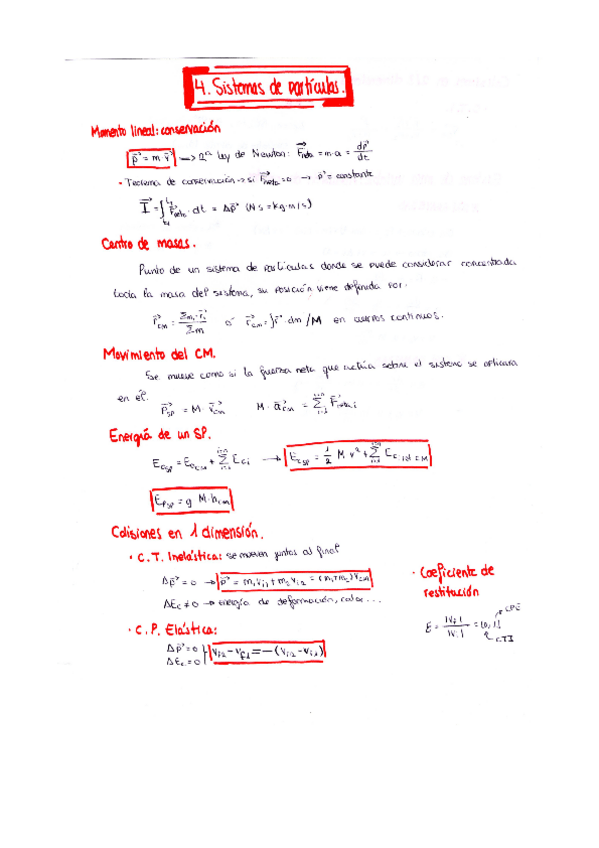 4. Sistemas de partículas.
Momento lineal: conservación
p⃗ = m v⃗ → 2ª Ley de Newton: F⃗neta = m·a = dp⃗/dt
· Teorema de conservación → si F⃗neta = 0 → p⃗ = constante
I⃗ = ∫ F⃗neta · dt = Δp⃗ (N·s = kg·m/s)
Centro de masas.
Punto de un sistema de partículas donde se puede considerar concentrada
toda la masa del sistema, su posición viene definida por:
r⃗cm = Σmᵢ·r⃗ᵢ / Σm ó r⃗cm = ∫r⃗ dm /M en cuerpos continuos.
Movimiento del CM.
Se mueve como si la fuerza neta que actúa sobre el sistema se aplicara
en él. P⃗SP = M·v⃗cm M·a⃗cm = Σ F⃗neta i
Energía de un SP.
EcSP = EcCM + Σ Eci → EcSP = 1/2 M v² + Σ Ec i rel CM
EpSP = g M·hcm
Colisiones en 1 dimensión.
· C.T. Inelástica: se mueven juntos al final
Δp⃗ = 0 → p⃗ = m₁vi1 + m₂vi2 = (m₁+m₂)vCM
ΔEc ≠ 0 → energía de deformación, calor...
· Coeficiente de
restitución
ε = |Vf| / |Vi| = [0,1] CPE
CTI
· C.P. Elástica:
Δp⃗ = 0
ΔEc = 0
vf2 - vf1 = -(vi2 - vi1)